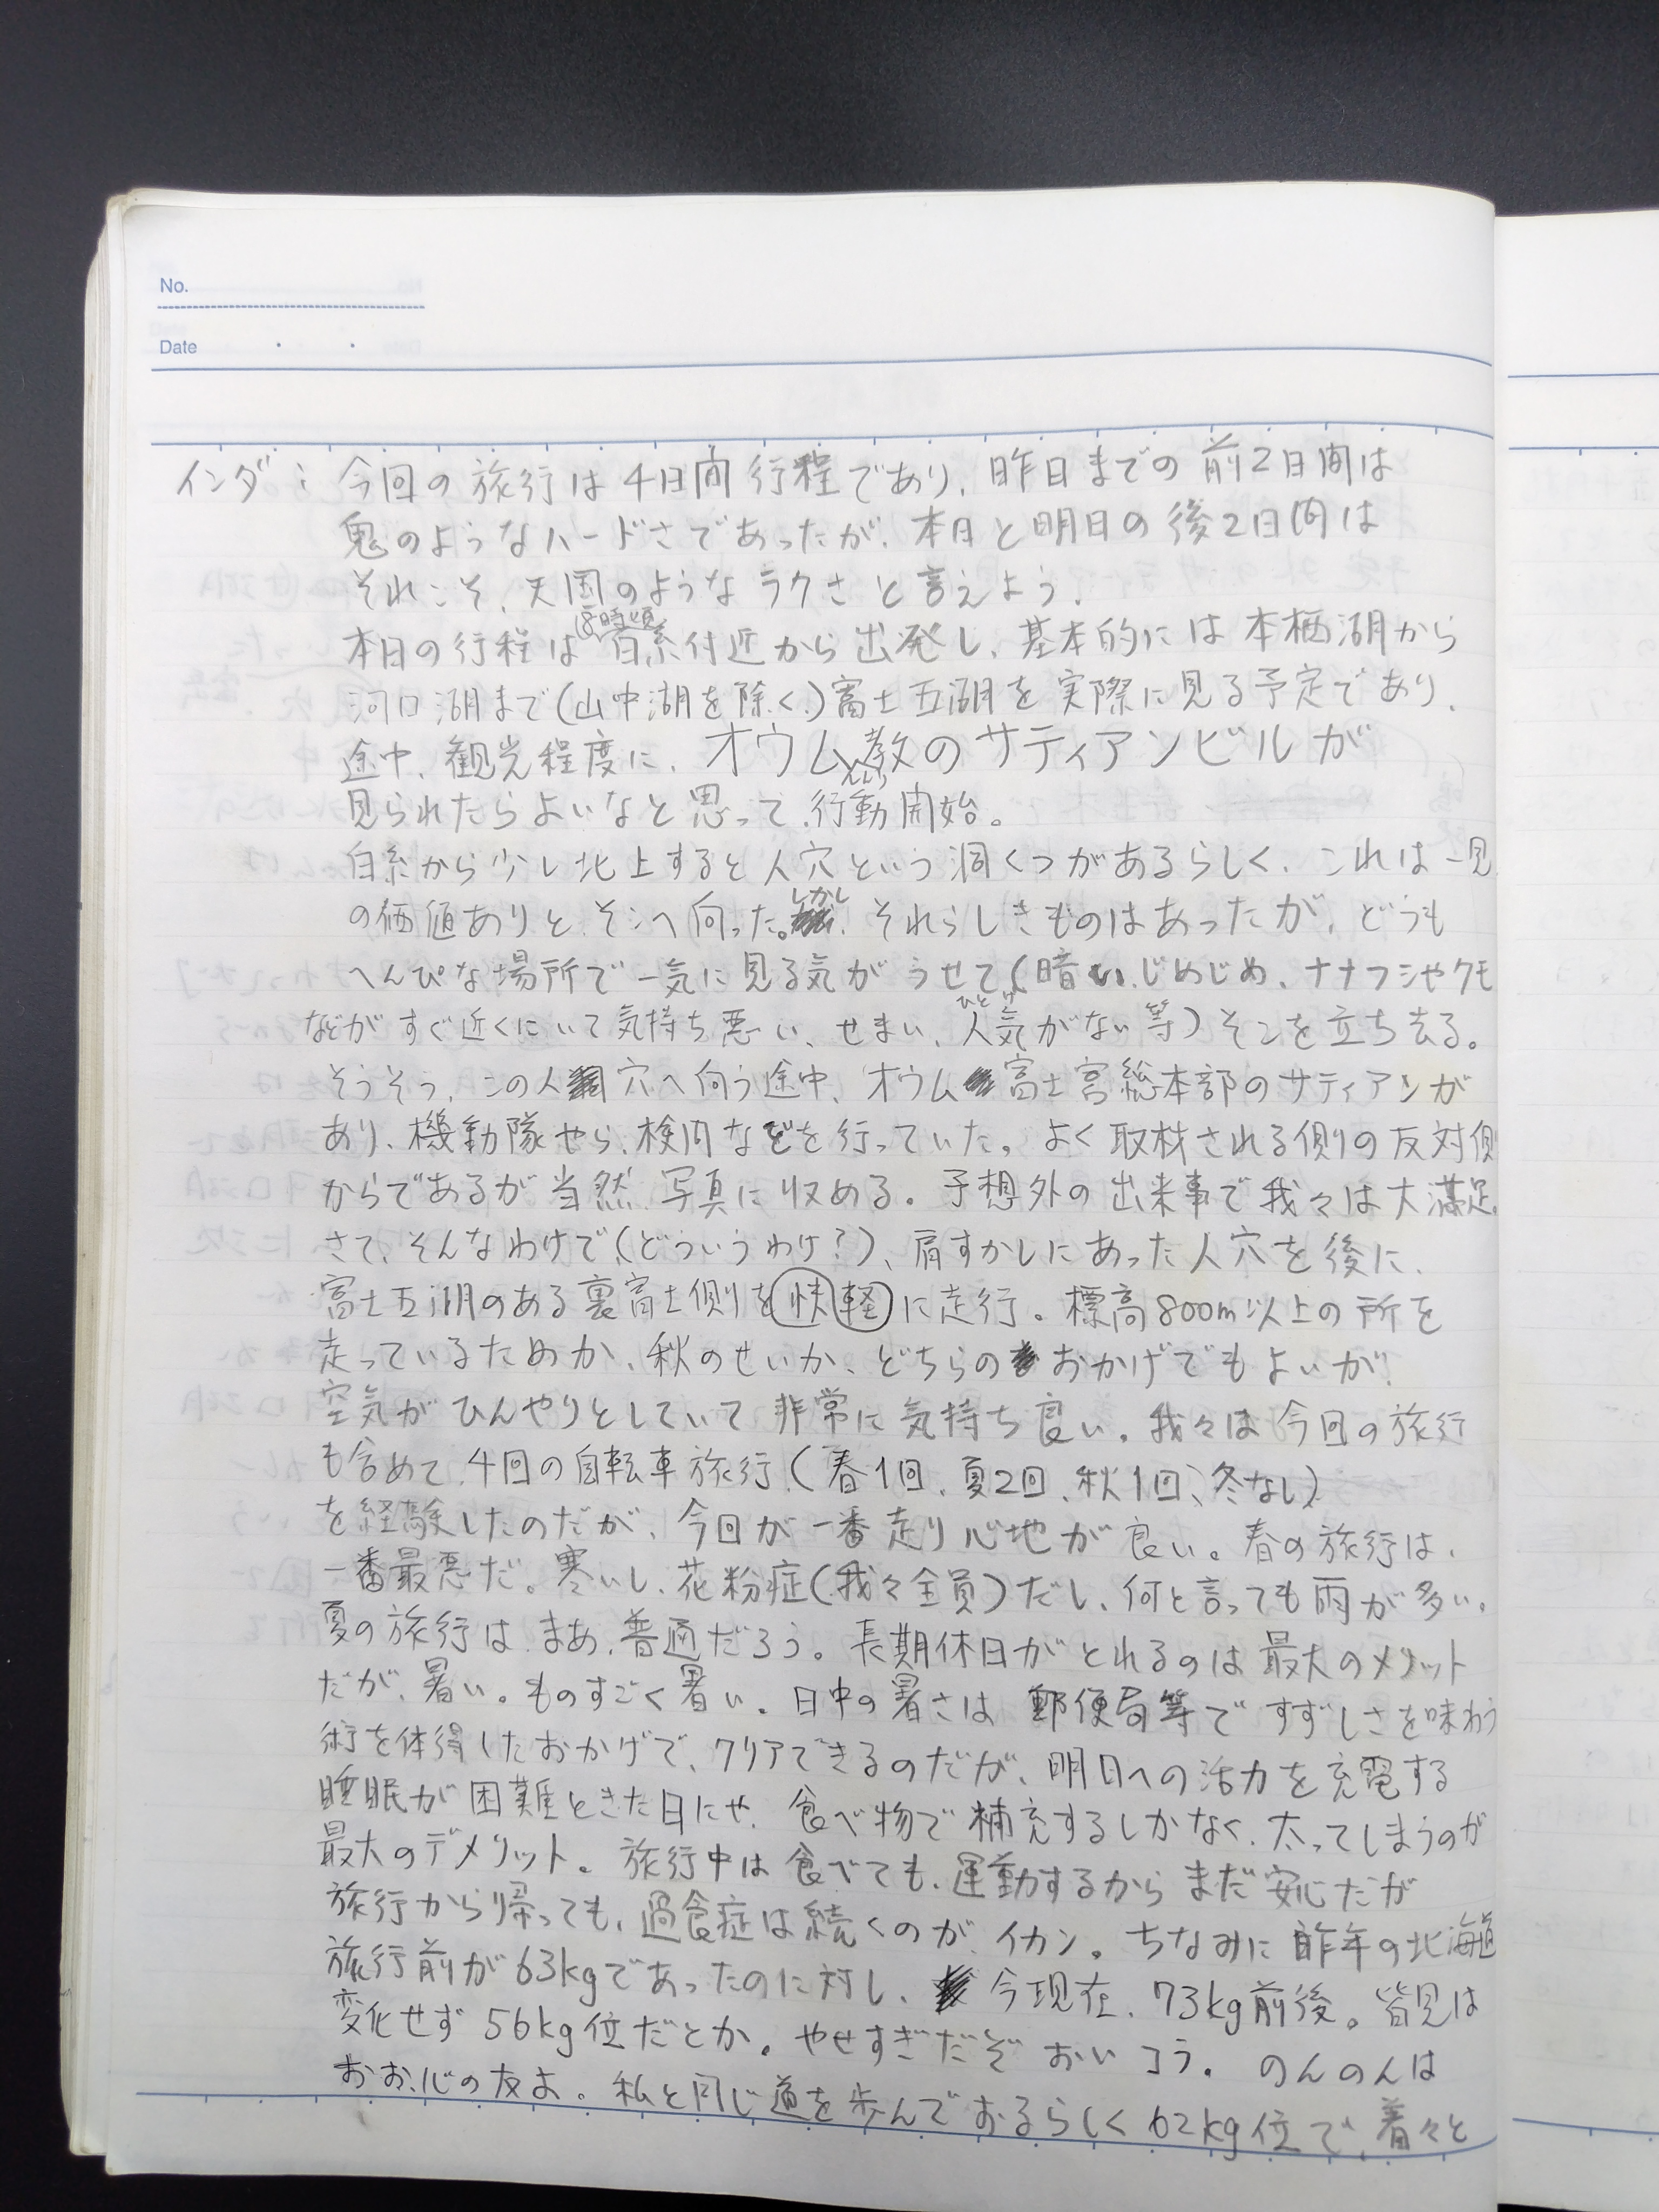 No.
Date
インダ: 今回の旅行は4日間行程であり、昨日までの前2日間は
鬼のようなハードさであったが、本日と明日の後2日間は
それこそ、天国のようなラクさと言えよう。
(8時頃)
本日の行程は白糸付近から出発し、基本的には本栖湖から
河口湖まで(山中湖を除く、)富士五湖を実際に見る予定であり、
途中、観光程度に、オウム教のサティアンビルが
見られたらよいなと思って、行動開始。
白糸から少し北上すると人穴という洞くつがあるらしく、これは一見
の価値ありと、そこへ向った。しかし、それらしきものはあったが、どうも
へんぴな場所で一気に見る気がうせて(暗い、じめじめ、ナナフシやクモ
などがすぐ近くにいて気持ち悪い、せまい、人気がない等)そこを立ち去る。
ひとけ
そうそう、この人穴へ向う途中、オウム富士宮総本部のサティアンが
あり、機動隊やら、検問などを行っていた。よく取材される側の反対側
からであるが当然、写真に収める。予想外の出来事で我々は大満足。
さて、そんなわけで(どういうわけ?)、肩すかしにあった人穴を後に、
富士五湖のある裏富士側を快軽に走行。標高800m以上の所を
走っているためか、秋のせいか、どちらのおかげでもよいが、
空気がひんやりとしていて非常に気持ち良い。我々は今回の旅行
も含めて、4回の自転車旅行、(春1回、夏2回、秋1回、冬なし)
を経験したのだが、今回が一番走り心地が良い。春の旅行は、
一番最悪だ。寒いし、花粉症(我々全員)だし、何と言っても雨が多い。
夏の旅行は、まあ、普通だろう。長期休日がとれるのは最大のメリット
だが、暑い。ものすごく暑い。日中の暑さは郵便局等ですずしさを味わう
術を体得したおかげで、クリアできるのだが、明日への活力を充電する
睡眠が困難ときた日にゃ、食べ物で補充するしかなく、太ってしまうのが
最大のデメリット。旅行中は食べても、運動するからまだ安心だが
旅行から帰っても、過食症は続くのが、イカン。ちなみに昨年の北海道
旅行前が63kgであったのに対し、今現在、73kg前後。皆見は
変化せず56kg位だとか。やせすぎだぞおいこう。のんのんは
おお、心の友よ。私と同じ道を歩んでおるらしく62kg位で、着々と